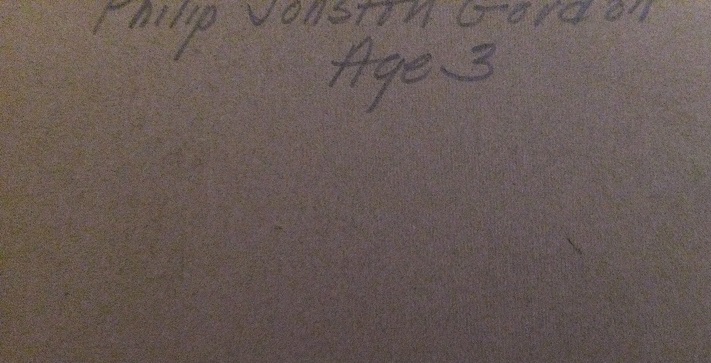 Philip Johston Gordon
Age 3